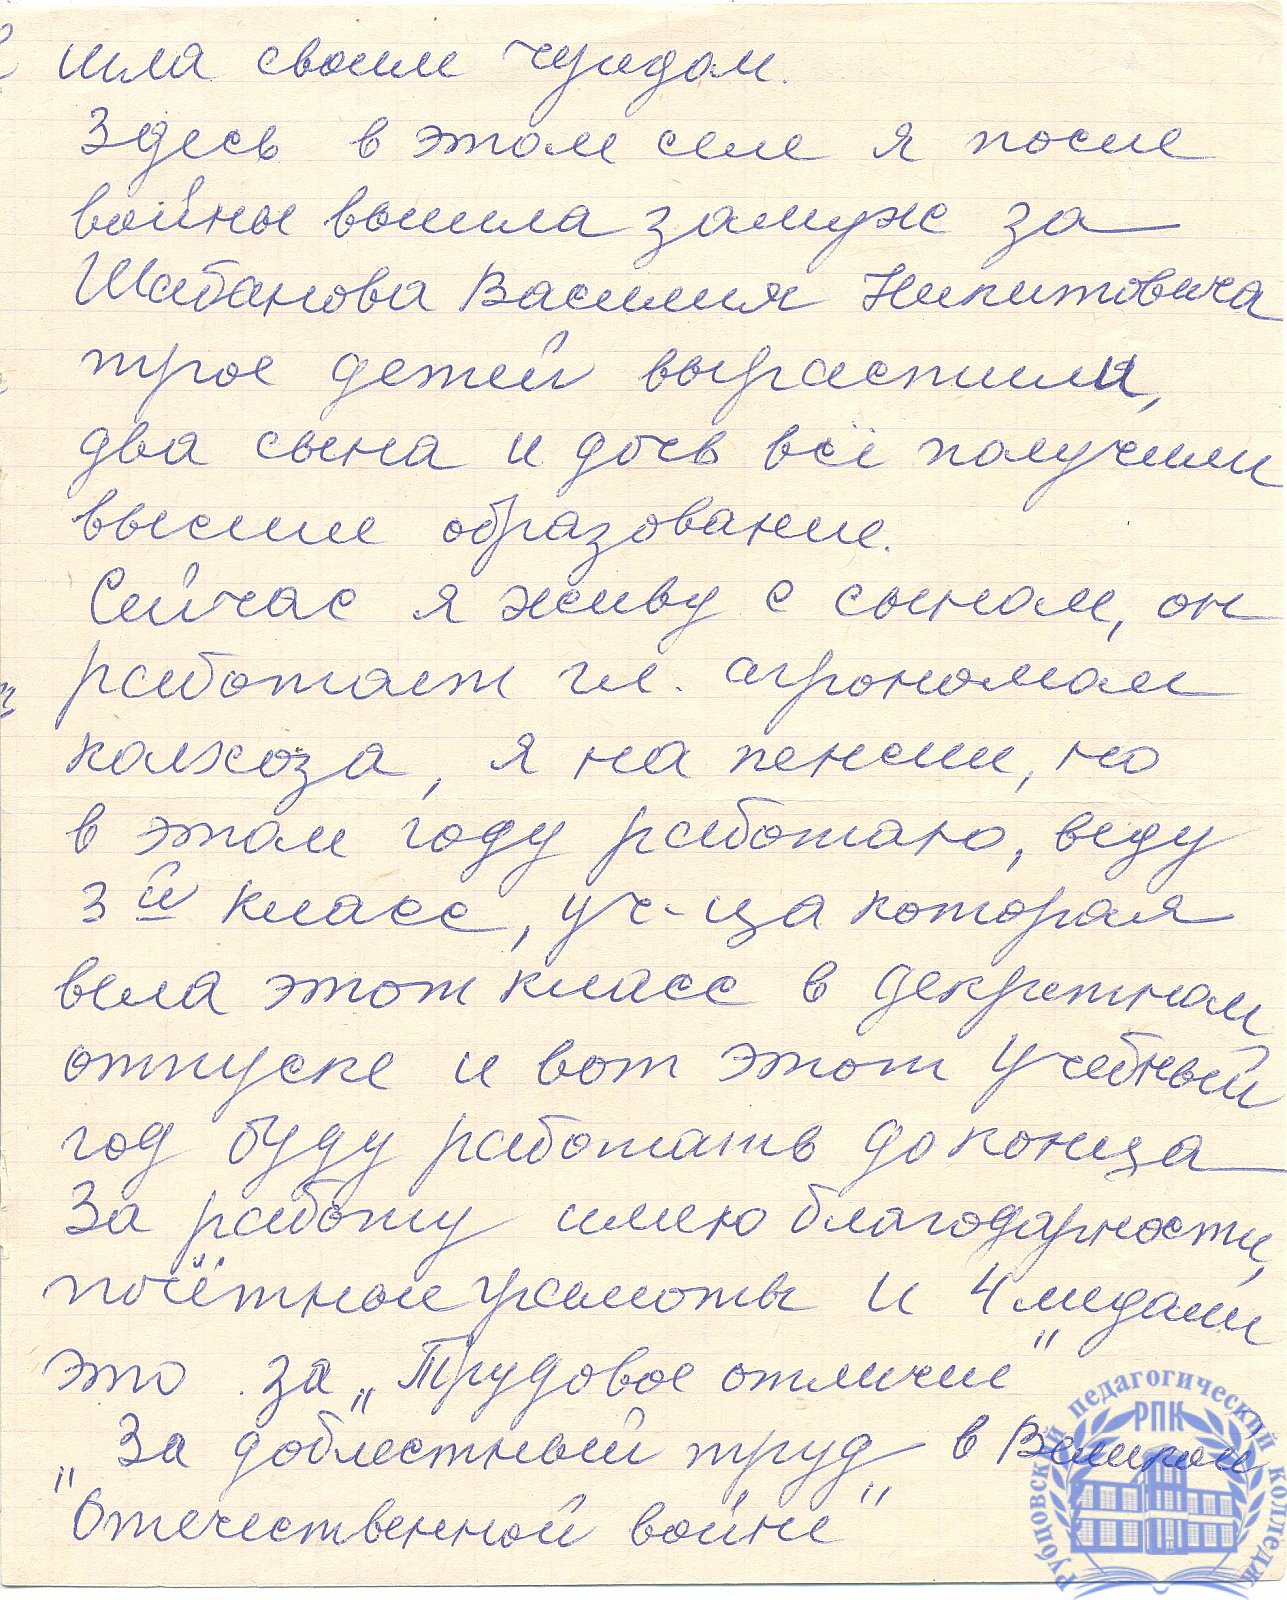 шла своим чередом.
Здесь в этом селе я после
войны вышла замуж за
Шабанова Василия Никитовича
трое детей вырастили,
два сына и дочь всё получили
высшие образование.
Сейчас я живу с сыном, он
работает гл. агрономом
колхоза, я на пенсии, но
в этом году работаю, веду
3й класс, уч-ца которая
вела этот класс в декретном
отпуске и вот этот учебный
год буду работать до конца
За работу имею благодарности,
почётные грамоты и 4 медали
это за „Трудовое отличие"
„За доблестный труд в Великой
Отечественной войне"
Рубцовский педагогический колледж
РПК